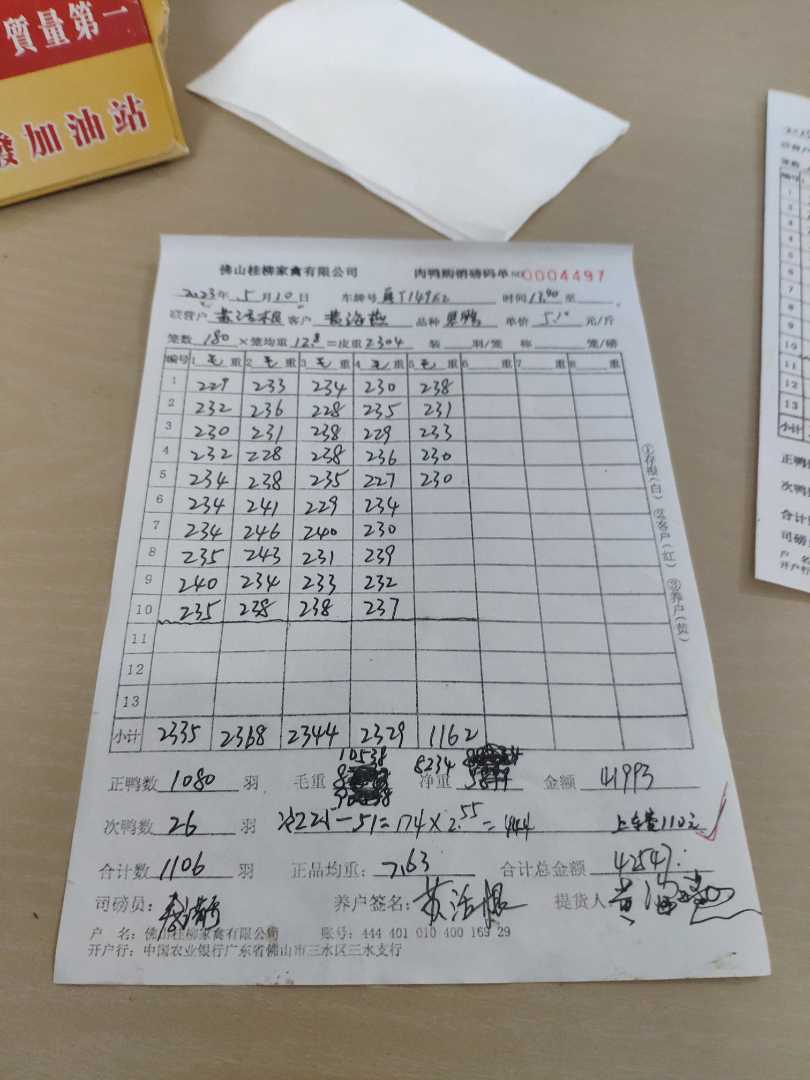 質量第一
發加油站
佛山桂柳家禽有限公司 肉鸭购销磅码单 NO 0004497
2023年 5月10日 车牌号 时间 13.40 至
客户 品种 果鸭 单价 5.10 元/斤
笼数 180 ×笼均重 12.8 =皮重 2304 装 羽/笼 称 笼/磅
编号 1 毛 重 2 毛 重 3 毛 重 4 毛 重 5 毛 重 6 重 7 重 8 重
1 229 233 234 230 238
2 232 236 228 235 231
3 230 231 238 229 233
4 232 228 238 236 230
5 234 238 235 227 230
6 234 241 229 234
7 234 246 240 230
8 235 243 231 239
9 240 234 233 232
10 235 238 238 237
11
12
13
小计 2335 2368 2344 2329 1162
①存根(白) ②客户(红) ③养户(黄)
10538
正鸭数 1080 羽 毛重 净重 8234 金额 41993
次鸭数 26 羽 次225-51=174×2.55=444 上车费110元
合计数 1106 羽 正品均重: 7.63 合计总金额 42547.
司磅员: 养户签名: 苏活根 提货人: 黄海
户 名: 佛山桂柳家禽有限公司 账号: 444 401 010 400 163 29
开户行: 中国农业银行广东省佛山市三水区三水支行
编号
1
2
3
4
5
6
7
8
9
10
11
12
13
小计
正鸭
次鸭
合计
司磅
户 名
开户行